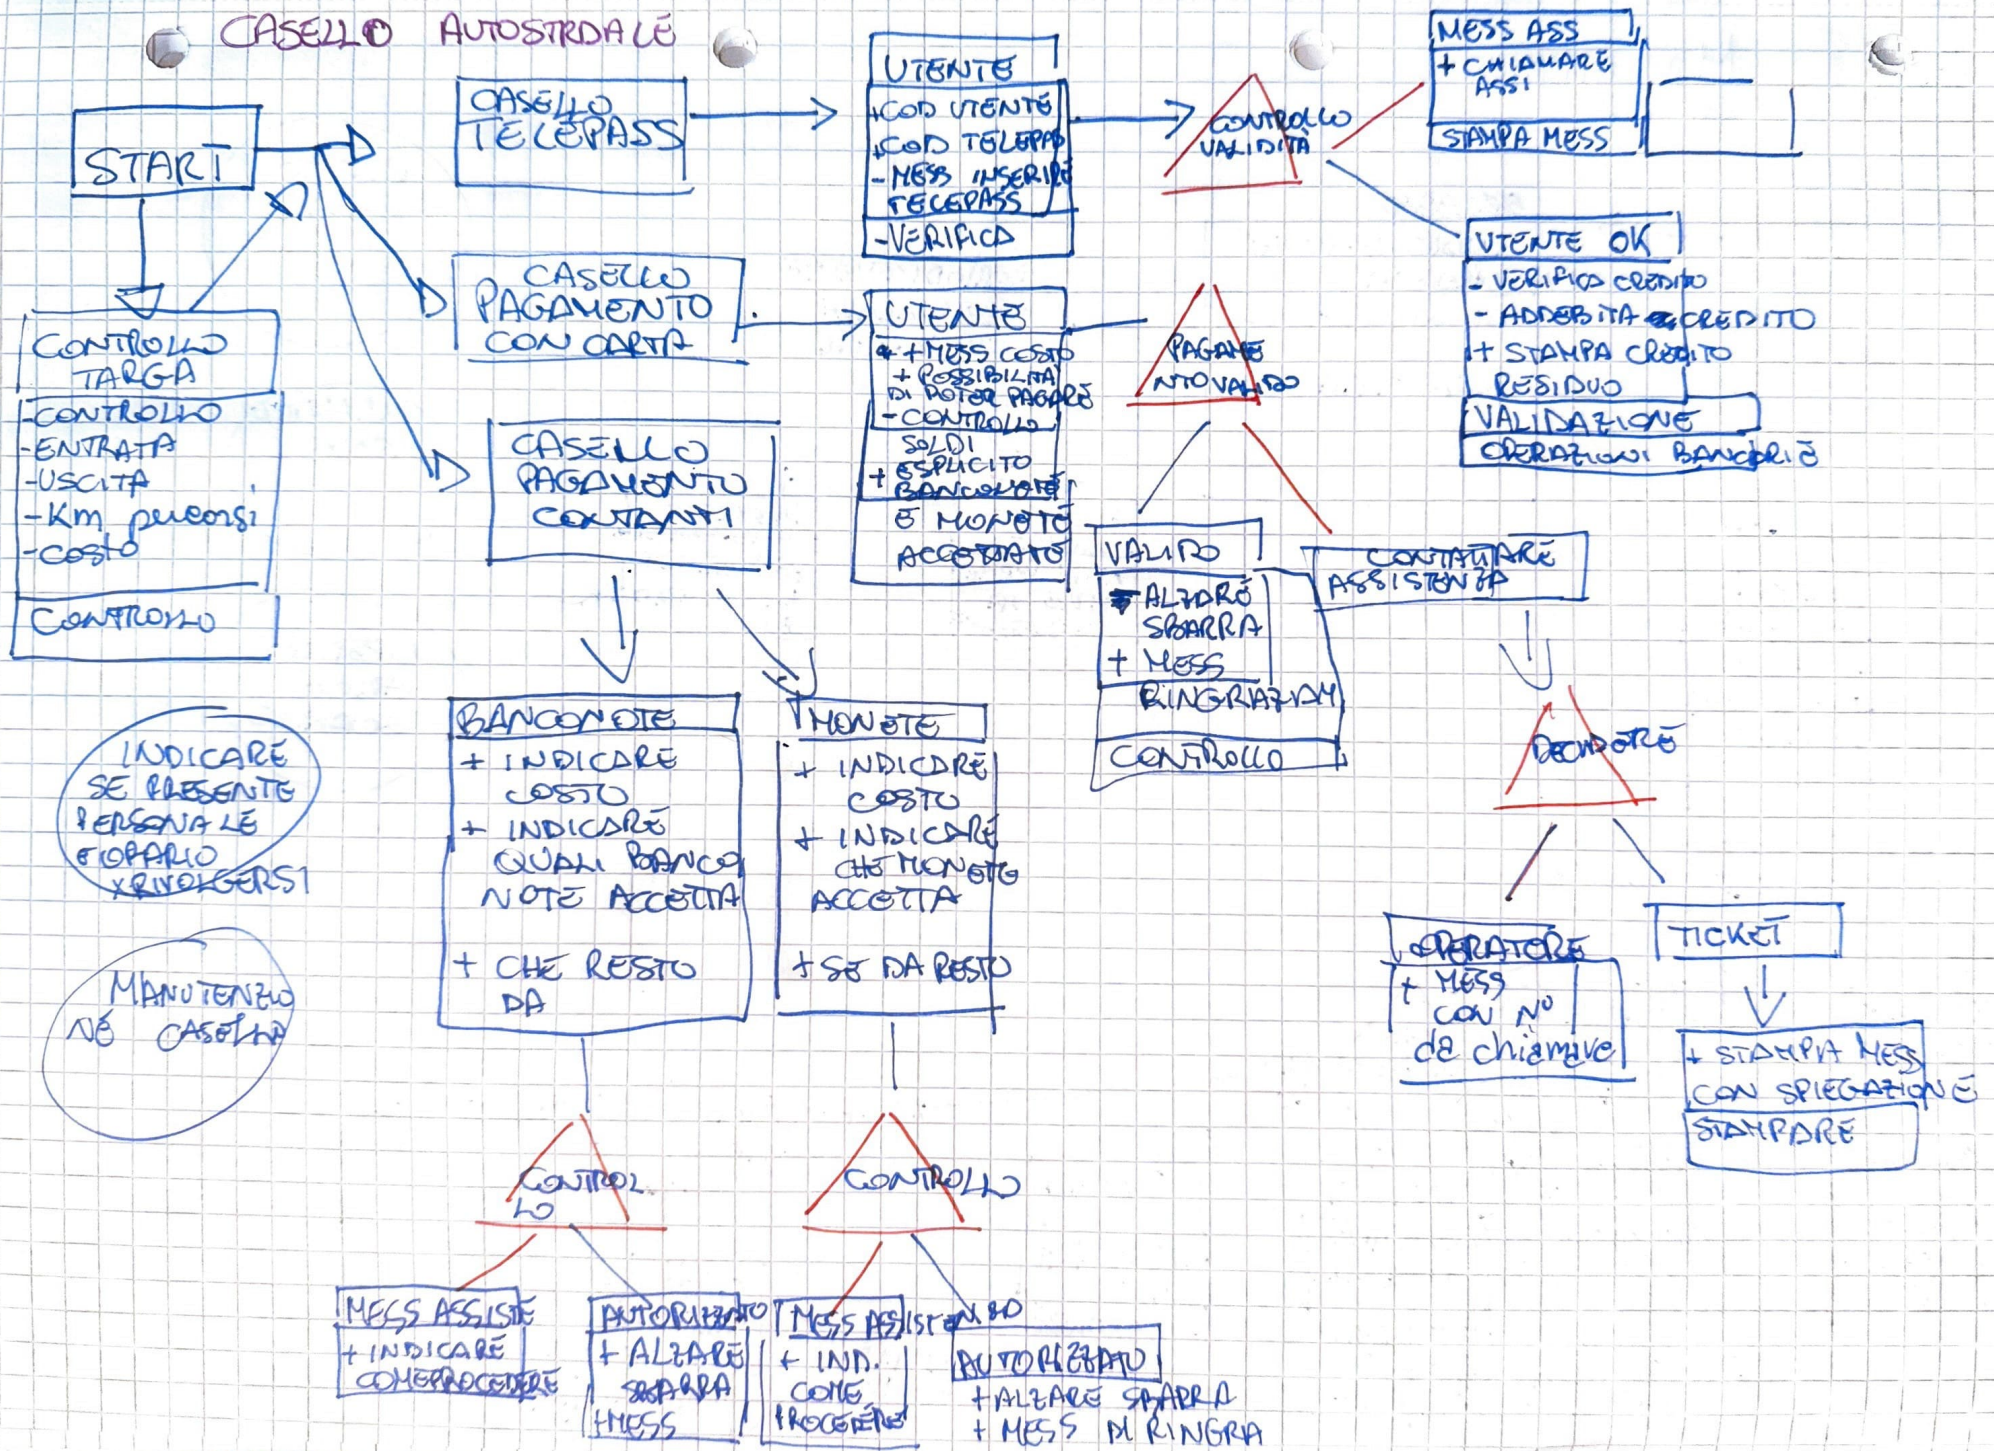 CASELLO AUTOSTRDALE
START
CONTROLLO
TARGA
-CONTROLLO
-ENTRATA
-USCITA
-Km percorsi
-costo
CONTROLLO
INDICARE
SE PRESENTE
PERSONALE
E ORARIO
X RIVOLGERSI
MANUTENZIO
NE CASELLO
CASELLO
TELEPASS
CASELLO
PAGAMENTO
CON CARTA
CASELLO
PAGAMENTO
CONTANTI
UTENTE
+COD UTENTE
+COD TELEPAS
-MESS INSERIRE
TELEPASS
-VERIFICA
CONTROLLO
VALIDITÀ
MESS ASS
+ CHIAMARE
ASSI
STAMPA MESS
UTENTE OK
- VERIFICA CREDITO
- ADDEBITA CREDITO
+ STAMPA CREDITO
RESIDUO
VALIDAZIONE
OPERAZIONI BANCARIE
UTENTE
+ MESS COSTO
+ POSSIBILITÀ
DI POTER PAGARE
- CONTROLLO
SOLDI
+ ESPLICITO
BANCONOTE
E MONETE
ACCETTATE
PAGAME
NTO VALIDO
VALIDO
ALZARE
SBARRA
+ MESS
RINGRAZIAM
CONTROLLO
CONTATTARE
ASSISTENZA
DECIDERE
OPERATORE
+ MESS
CON N°
da chiamare
TICKET
+ STAMPA MESS
CON SPIEGAZIONE
STAMPARE
BANCONOTE
+ INDICARE
COSTO
+ INDICARE
QUALI BANCO
NOTE ACCETTA
+ CHE RESTO
DA
MONETE
+ INDICARE
COSTO
+ INDICARE
CHE MONETE
ACCETTA
+ SE DA RESTO
CONTROL
LO
CONTROLLO
MESS ASSISTE
+ INDICARE
COME PROCEDERE
AUTORIZZATO
+ ALZARE
SBARRA
+MESS
MESS ASSISTENZA
+ IND.
COME
PROCEDERE
AUTORIZZATO
+ ALZARE SBARRA
+ MESS DI RINGRA